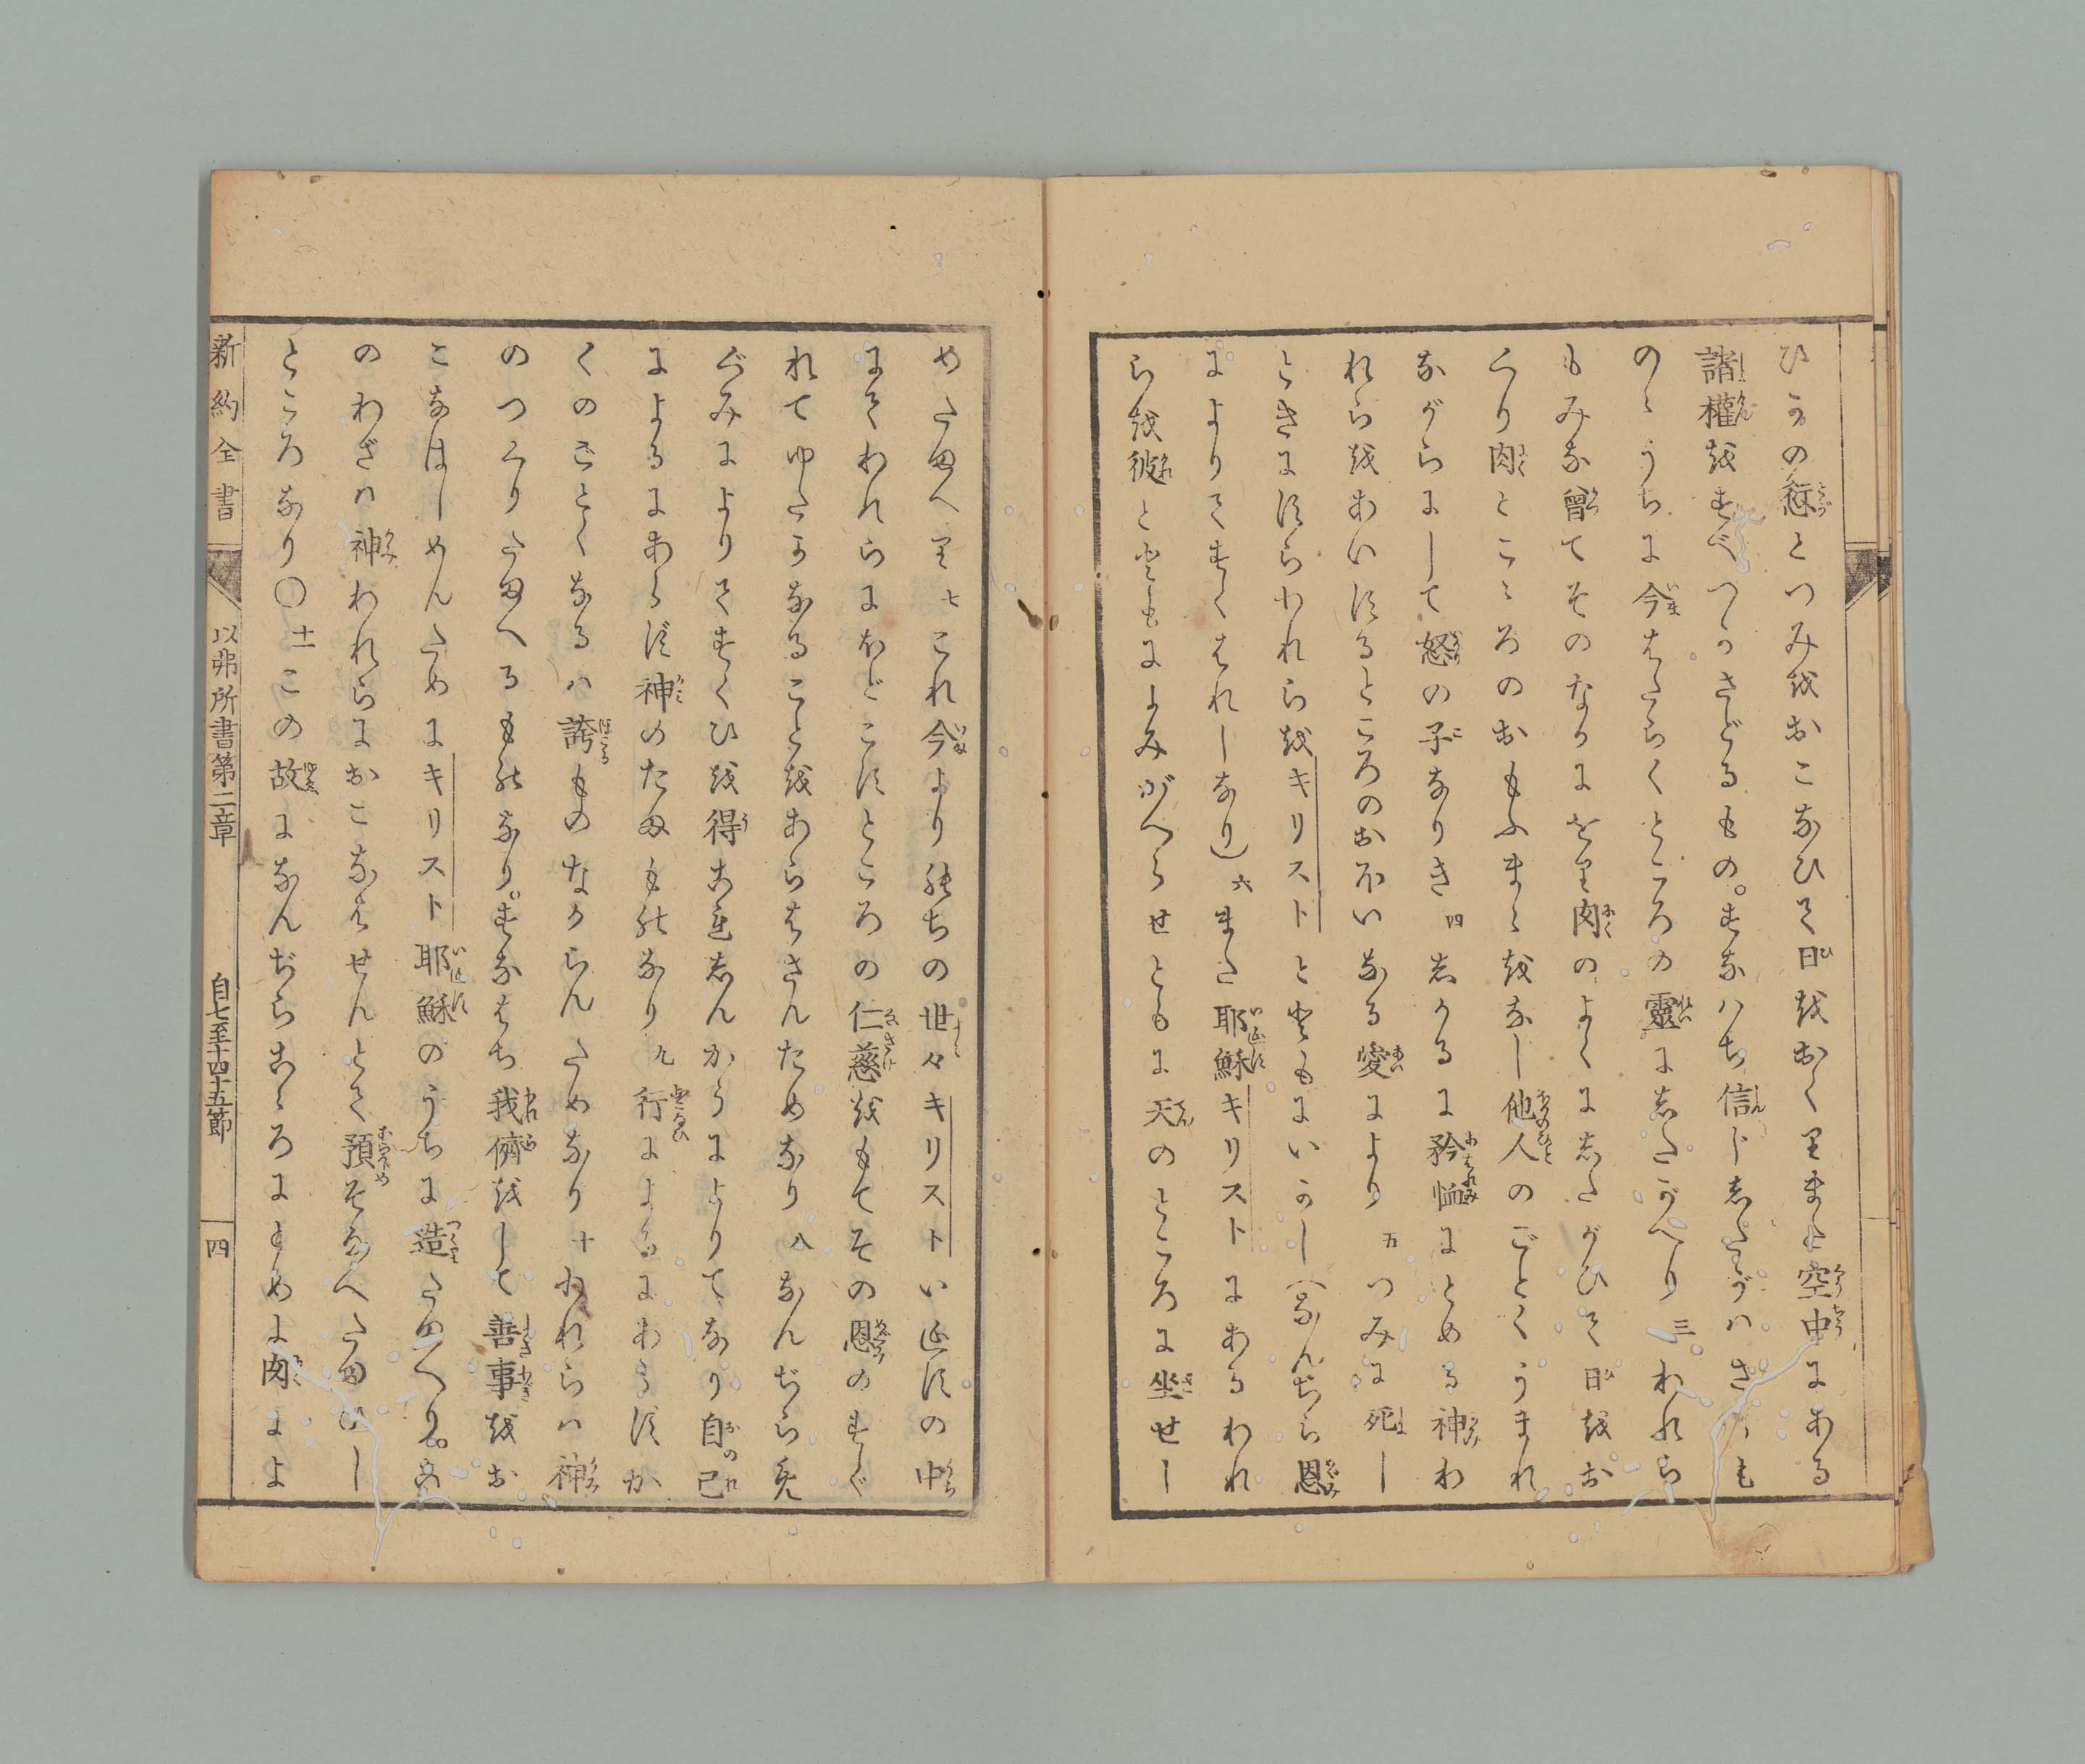 ひかの愆とつみをおこなひて日をおくりまた空中にある
諸權をすべつかさどるもの。すなハち信じしたがハざるも
のゝうちに今はたらくところの靈にしたがへり三われら
もみな曾てそのなかにをり肉のよくにしたがひて日をお
くり肉とこゝろのおもふまゝをなし他人のごとくうまれ
ながらにして怒の子なりき四しかるに矜恤にとめる神わ
れらをあいするところのおほいなる愛により五つみに死し
ときにすらわれらをキリストとともにいかし(なんぢら恩
によりてすくはれしなり)六また耶穌キリストにあるわれ
らを彼とともによみがへらせともに天のところに坐せし
めたまへり七これ今よりのちの世々キリストいエスの中
にてわれらにほどこすところの仁慈をもてその恩のすぐ
れてゆたかなることをあらはさんためなり八なんぢら免
ぐみによりてすくひを得これしんかうによりてなり自己
によるにあらず神のたまものなり九行によるにあらずか
くのごとくなるハ誇ものなからんためなり十われらハ神
のつくりたまへるものなり。すなはち我儕をして善事をお
こなはしめんためにキリスト耶穌のうちに造たまへり。こ
のわざハ神われらにおこなはせんとて預そなへたまひし
ところなり〇十一この故になんぢらこゝろにとめよ肉によ
新約全書
以弗所書第二章
自七至十四十五節
四